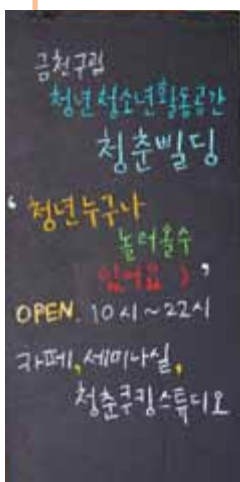 금천구립
청년청소년활동공간
청춘삘딩
‘청년누구나
놀러올수
있어요 :)’
OPEN. 10시~22시
카페, 세미나실,
청춘쿠킹스튜디오